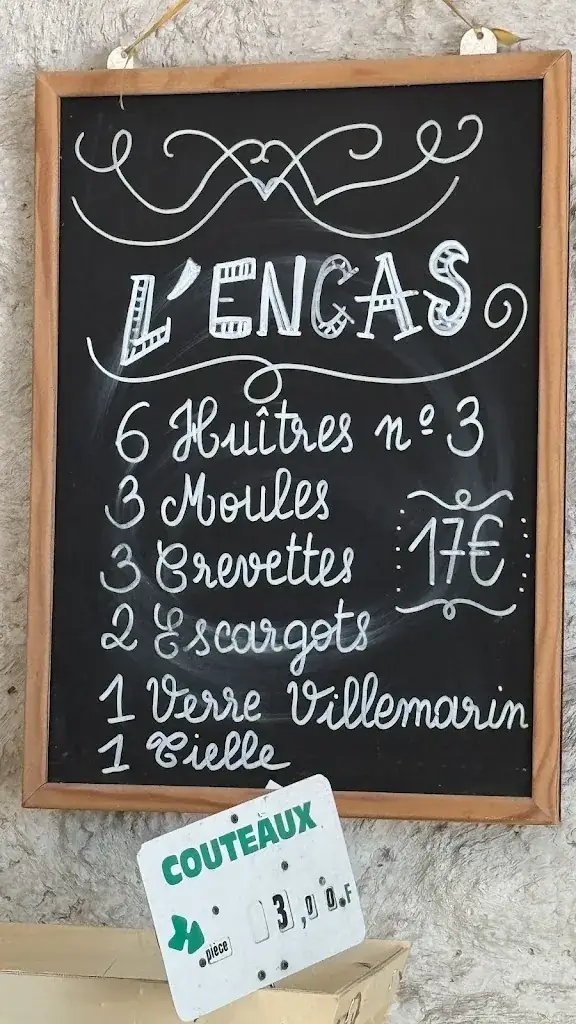 L'ENCAS
6 Huîtres nº 3
3 Moules
3 Crevettes
17€
2 Escargots
1 Verre Villemarin
1 Tielle
COUTEAUX
pièce 3,00.F